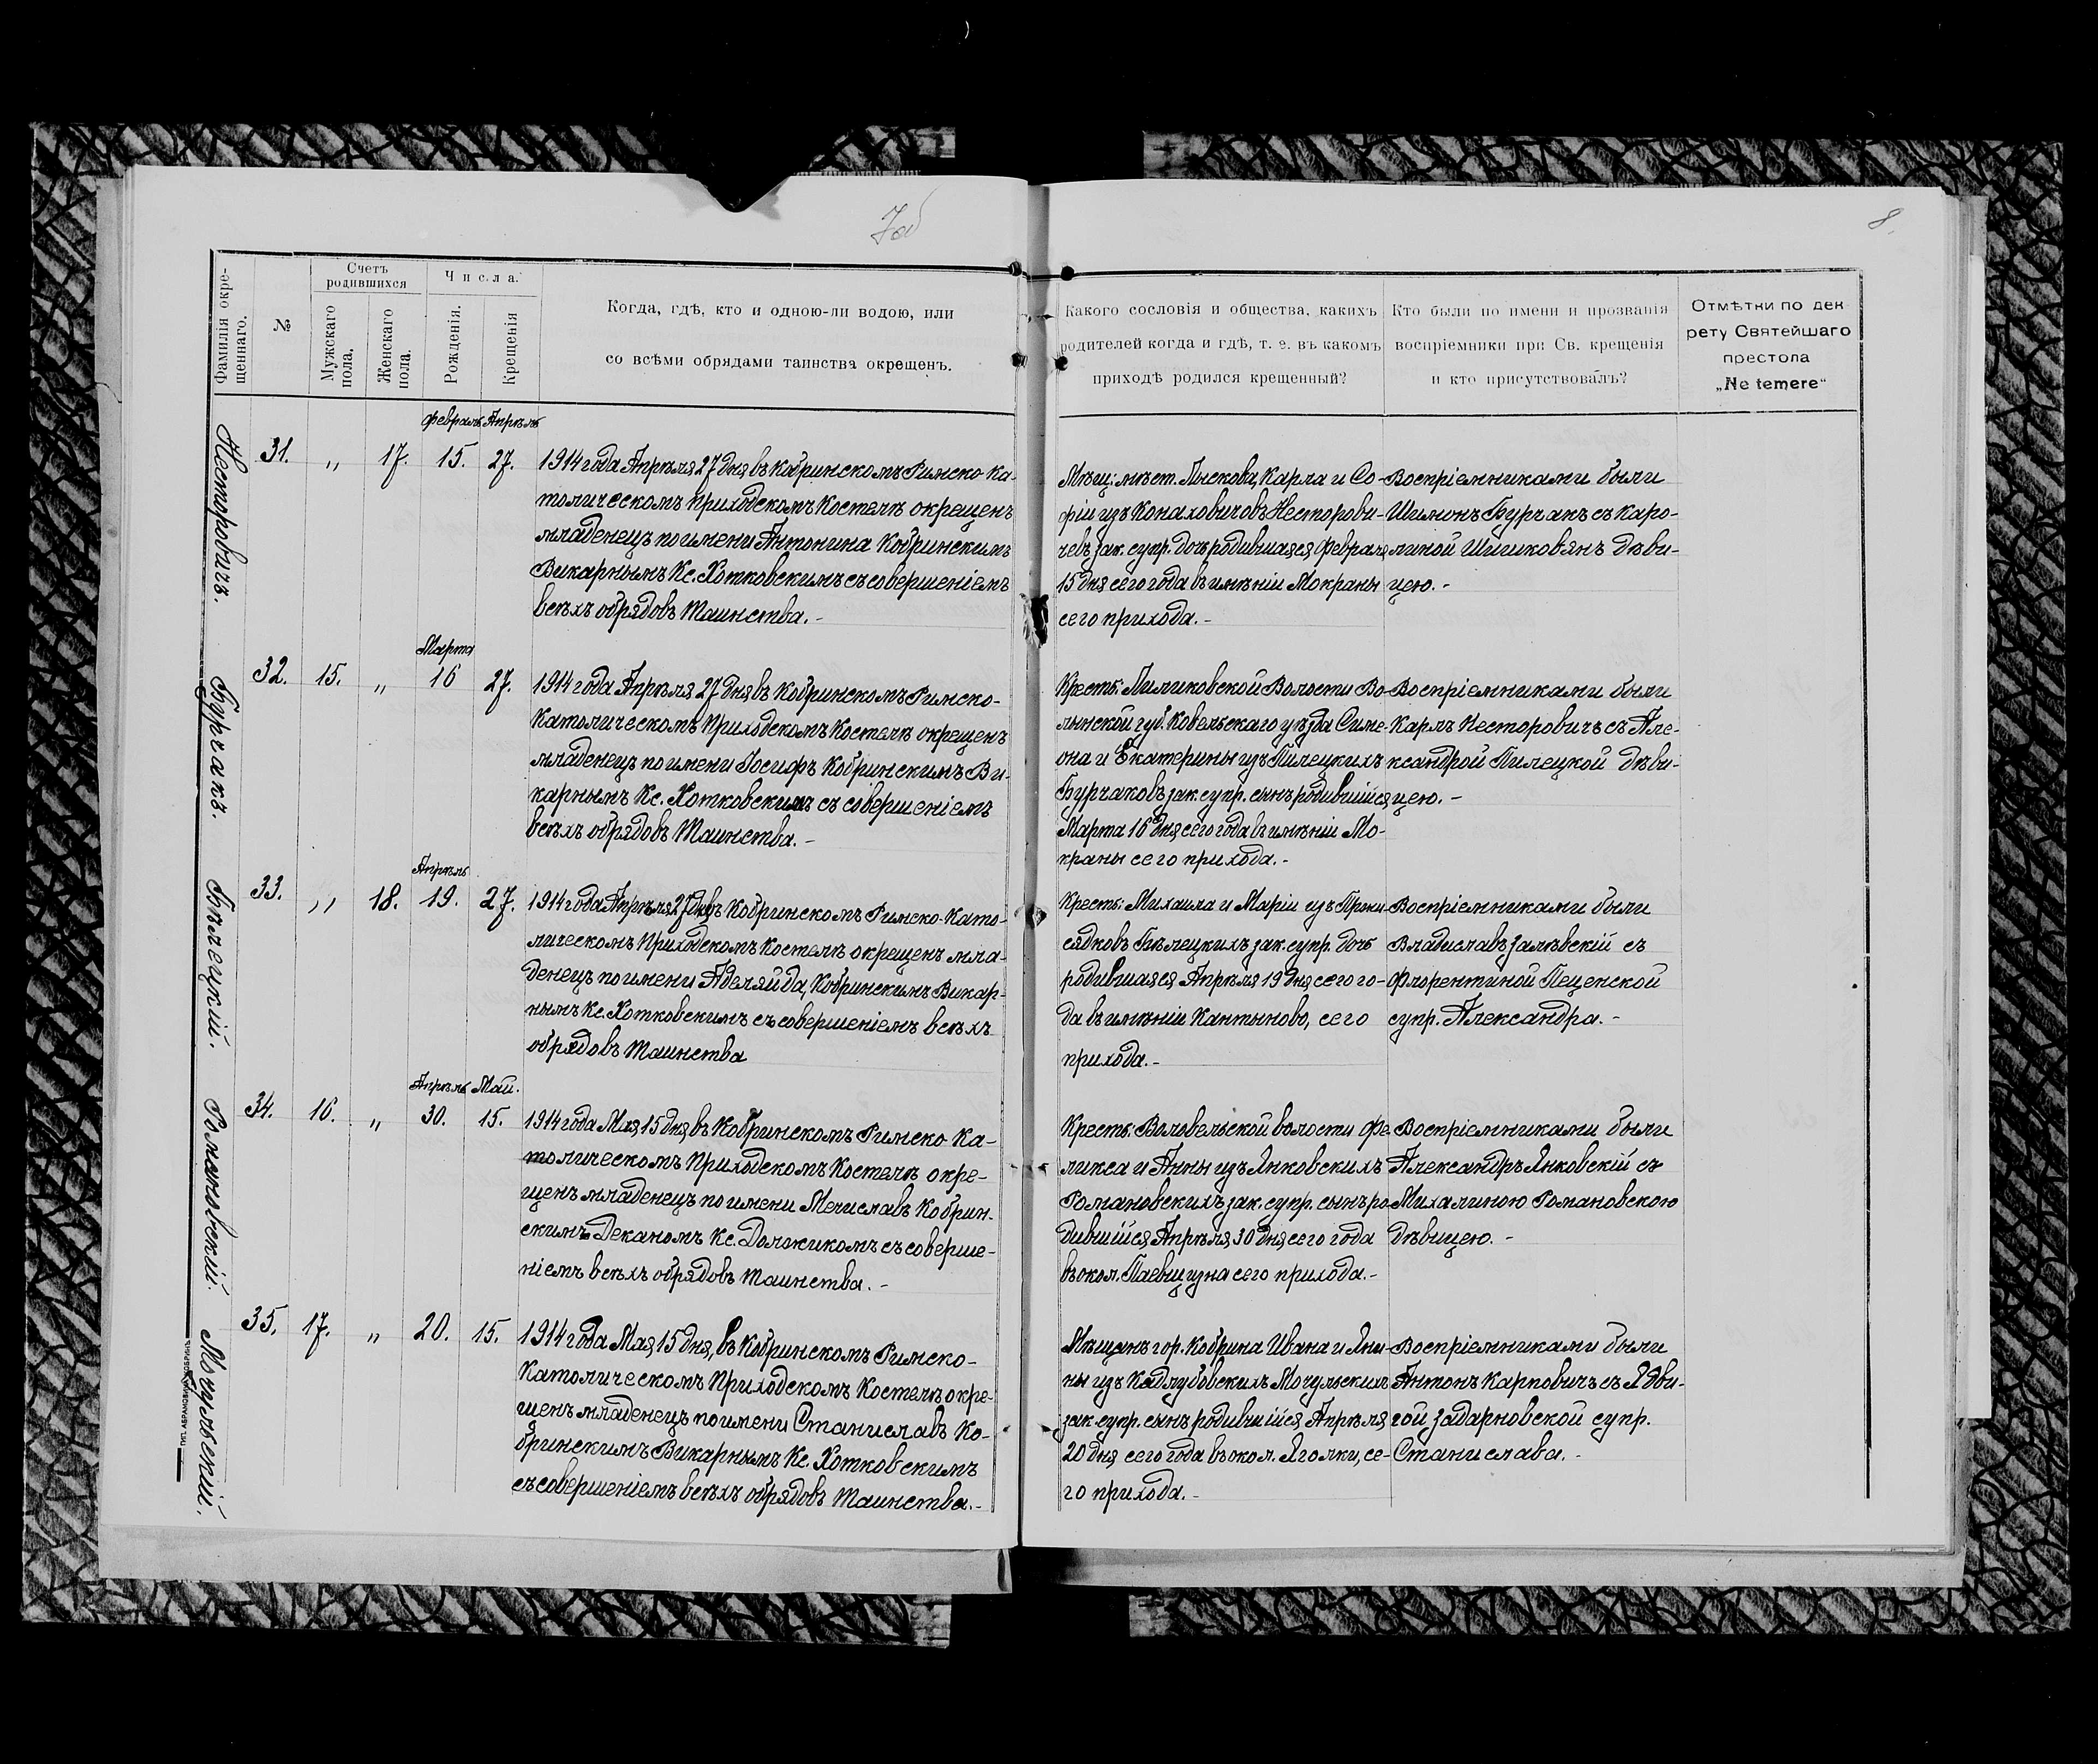 7об
8.
Фамилія окре-
щеннаго.
№
Счетъ
родившихся
Мужскаго
пола.
Женскаго
пола.
Числа.
Рожденія.
Крещенія
Когда, гдѣ, кто и одною-ли водою, или
со всѣми обрядами таинства окрещенъ.
Какого сословія и общества, какихъ
родителей когда и гдѣ, т. е. въ какомъ
приходѣ родился крещенный?
Кто были по имени и прозванія
воспріемники при Св. крещенія
и кто присутствовалъ?
Отмѣтки по дек
рету Святейшаго
престола
„Ne temere“
Несторовичъ.
31. „ 17.
Февраль 15.
Апрѣль 27.
1914 года Апрѣля 27 дня въ Кобринскомъ Римско Ка-
толическомъ Приходскомъ Костелѣ окрещенъ
младенецъ по имени Антонина Кобринскимъ
Викарнымъ Кс. Хотковскимъ съ совершеніемъ
всѣхъ обрядовъ Таинства.-
Мѣщ: мѣст. Лыскова, Карла и Со-
фіи изъ Конаховичовъ Несторови-
чевъ зак. супр. дочь родившаяся Февраля
15 дня сего года въ имѣніи Мокраны
сего прихода.-
Воспріемниками были
Шимонъ Бурчакъ съ Каро-
линой Шишковянъ дѣви-
цею.-
Бурчакъ.
32. 15. „
Марта
16 27.
1914 года Апрѣля 27 дня въ Кобринскомъ Римско-
Католическомъ Приходскомъ Костелѣ окрещенъ
младенецъ по имени Іосифъ Кобринскимъ Ви-
карнымъ Кс. Хотковскимъ съ совершеніемъ
всѣхъ обрядовъ Таинства.-
Крестъ: Волости Во-
лынской губ. Ковельскаго уѣзда Симе-
она и Екатерины изъ Пилецкихъ
Бурчаковъ зак. супр. сынъ родившійся
Марта 16 дня сего года въ имѣніи Мо-
краны сего прихода.-
Воспріемниками были
Карлъ Несторовичъ съ Але-
ксандрой Пилецкой дѣви-
цею.-
Бѣлецкій.
33. „ 18.
Апрѣль
19. 27.
1914 года Апрѣля 27 дня въ Кобринскомъ Римско-Като-
лическомъ Приходскомъ Костелѣ окрещенъ мла-
денецъ по имени Аделяйда, Кобринскимъ Викар-
нымъ Кс. Хотковскимъ съ совершеніемъ всѣхъ
обрядовъ Таинства
Крестъ: Михаила и Маріи изъ
Бѣлецкихъ зак. супр. дочь
родившаяся Апрѣля 19 дня сего го-
да въ имѣніи Кантыново, сего
прихода.-
Воспріемниками были
Владиславъ Залѣвскій съ
Флорентиной Пеценской
супр. Александра.-
Романовскій.
34. 16. „
Апрѣль Май.
30. 15.
1914 года Мая 15 дня въ Кобринскомъ Римско Ка-
толическомъ Приходскомъ Костелѣ окре-
щенъ младенецъ по имени Мечиславъ Кобрин-
скимъ Деканомъ Кс. Должикомъ съ соверше-
ніемъ всѣхъ обрядовъ Таинства.-
Крестъ: Воловельской волости Фе
ликса и Анны изъ Янковскихъ
Романовскихъ зак. супр. сынъ ро
дившійся Апрѣля 30 дня сего года
въ окол. Паевщизна сего прихода.-
Воспріемниками были
Александръ Янковскій съ
Михалиною Романовскою
Дѣвицею.-
Мочульскій.
35. 17. „ 20. 15.
1914 года Мая 15 дня, въ Кобринскомъ Римско-
Католическомъ Приходскомъ Костелѣ окре-
щенъ младенецъ по имени Станиславъ Ко-
бринскимъ Викарнымъ Кс. Хотковскимъ
съ совершеніемъ всѣхъ обрядовъ Таинства.-
Мѣщанъ гор. Кобрина Ивана и Яни-
ны изъ Кадлубовскихъ Мочульскихъ
зак. супр. сынъ родившійся Апрѣля
20 дня сего года въ окол. Яголки, се-
го прихода.-
Воспріемниками были
Антонъ Карповичъ съ Ядви-
гой Задарновской супр.
Станислава.-